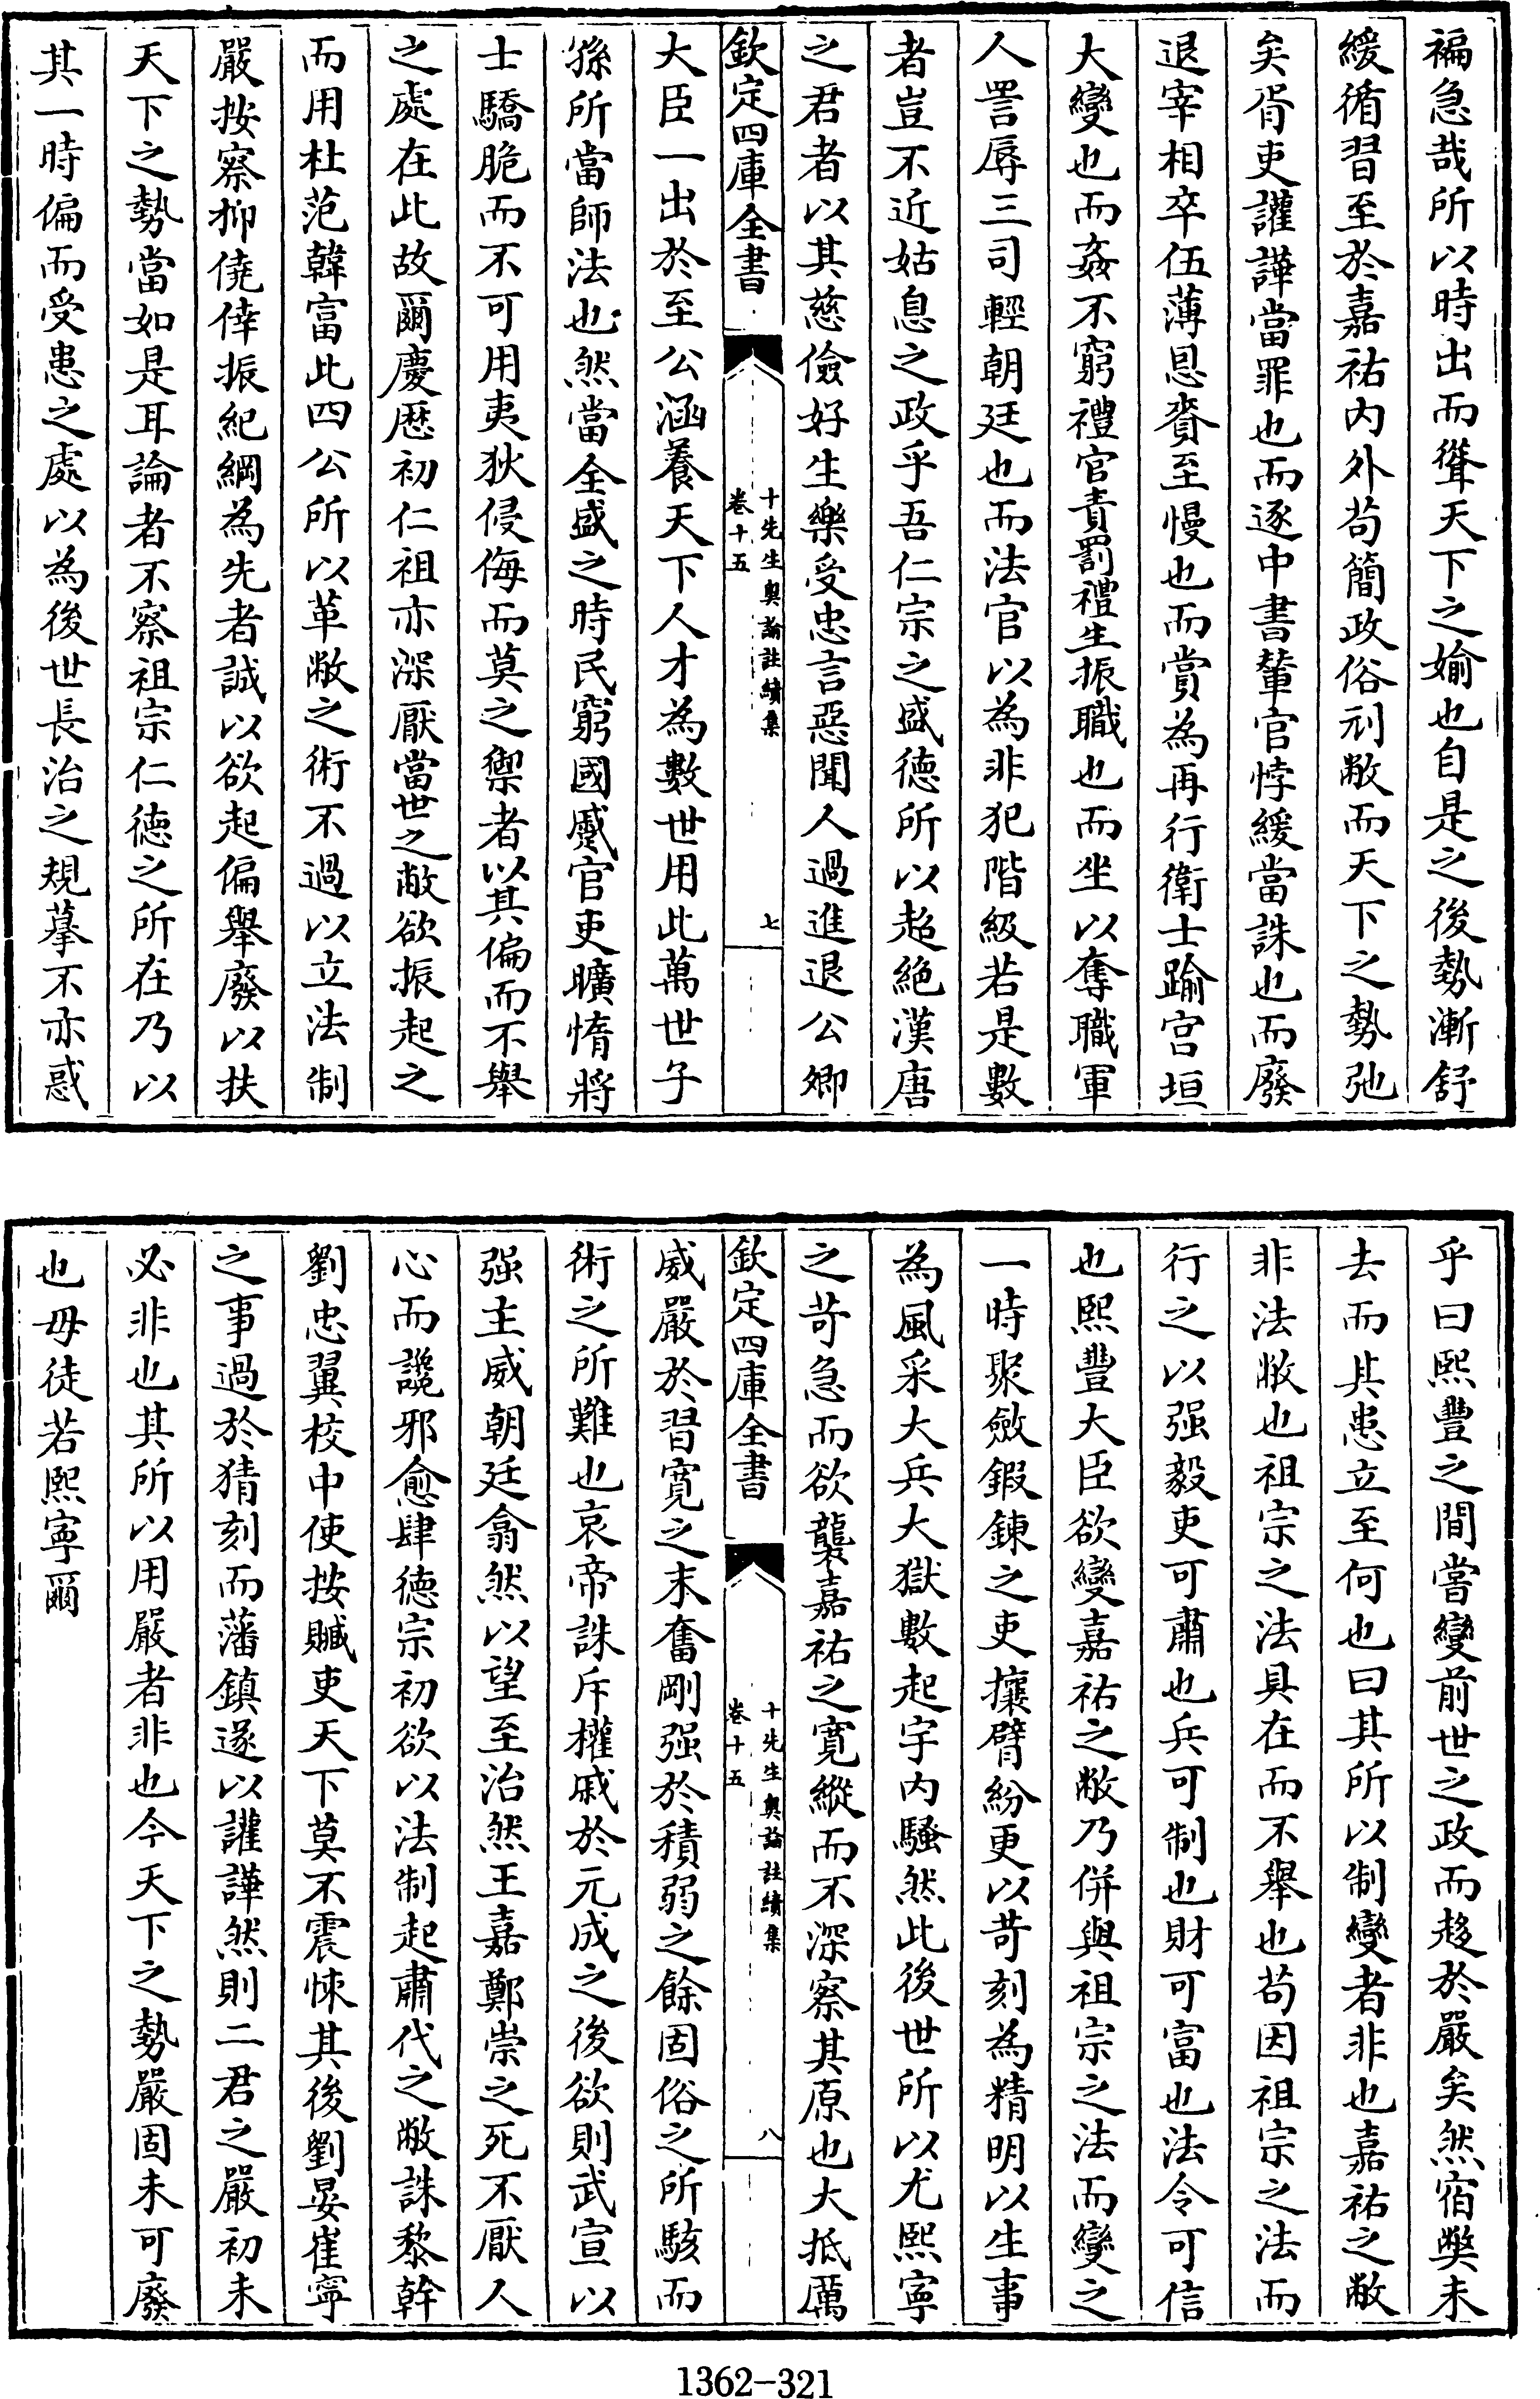 褊急哉所以時出而聳天下之媮也自是之後勢漸舒
緩循習至於嘉祐内外茍簡政俗刓敝而天下之勢弛
矣胥吏讙譁當罪也而逐中書輦官悖緩當誅也而廢
退宰相卒伍薄恩賚至慢也而賞為再行衛士踰宫垣
大變也而姦不窮禮官責罰禮生振職也而坐以奪職軍
人詈辱三司輕朝廷也而法官以為非犯階級若是數
者豈不近姑息之政乎吾仁宗之盛徳所以超絶漢唐
之君者以其慈儉好生樂受忠言惡聞人過進退公卿
欽定四庫全書
十先生奧論註續集
卷十五
七
大臣一出於至公涵養天下人才為數世用此萬世子
孫所當師法也然當全盛之時民窮國蹙官吏曠惰將
士驕脆而不可用夷狄侵侮而莫之禦者以其偏而不舉
之處在此故爾慶歴初仁祖亦深厭當世之敝欲振起之
而用杜范韓富此四公所以革敝之術不過以立法制
嚴按察抑僥倖振紀綱為先者誠以欲起偏舉廢以扶
天下之勢當如是耳論者不察祖宗仁徳之所在乃以
其一時偏而受患之處以為後世長治之規摹不亦惑
乎曰熙豐之間嘗變前世之政而趍於嚴矣然宿弊未
去而其患立至何也曰其所以制變者非也嘉祐之敝
非法敝也祖宗之法具在而不舉也茍因祖宗之法而
行之以强毅吏可肅也兵可制也財可富也法令可信
也熙豐大臣欲變嘉祐之敝乃併與祖宗之法而變之
一時聚斂鍜鍊之吏攘臂紛更以苛刻為精明以生事
為風采大兵大獄數起宇内騷然此後世所以尤熙寧
之苛急而欲襲嘉祐之寛縱而不深察其原也大抵厲
欽定四庫全書
十先生奧論註續集
卷十五
八
威嚴於習寛之末奮剛强於積弱之餘固俗之所駭而
術之所難也哀帝誅斥權戚於元成之後欲則武宣以
强主威朝廷翕然以望至治然王嘉鄭崇之死不厭人
心而讒邪愈肆徳宗初欲以法制起肅代之敝誅黎幹
劉忠翼校中使按贓吏天下莫不震悚其後劉晏崔寜
之事過於猜刻而藩鎮遂以讙譁然則二君之嚴初未
必非也其所以用嚴者非也今天下之勢嚴固未可廢
也毋徒若熙寧爾
1362-321